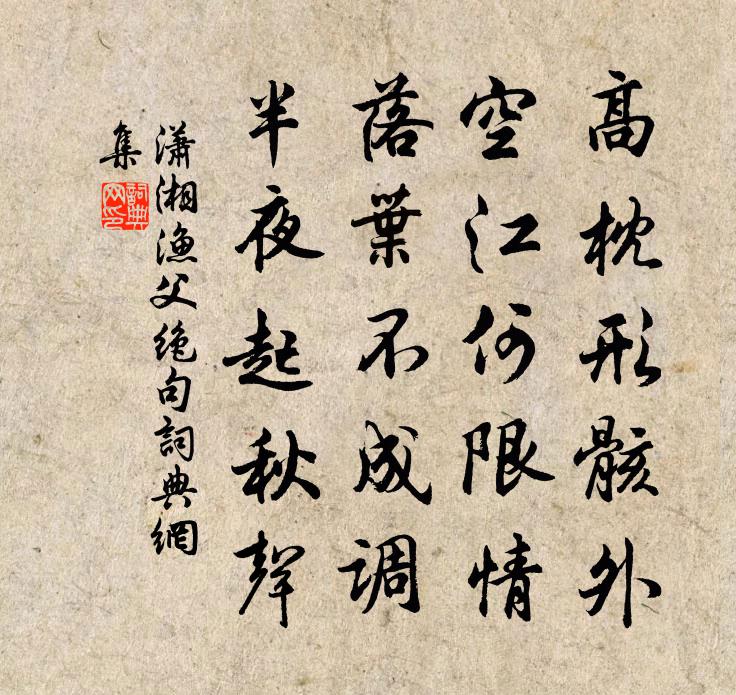 高枕形骸外
空江何限情
落葉不成调
半夜起秋聲
瀟湘漁父絶句詞典網
集
詞典
网印